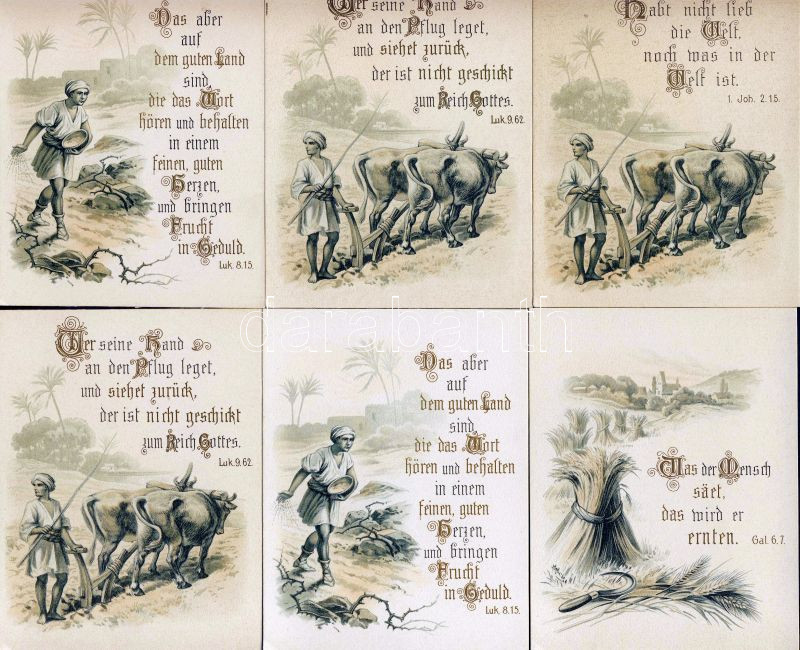 Das aber
auf
dem guten Land
sind,
die das Wort
hören und behalten
in einem
feinen, guten
Herzen,
und bringen
Frucht
in Geduld.
Luk. 8.15.
Wer seine Hand
an den Pflug leget,
und siehet zurück,
der ist nicht geschickt
zum Reich Gottes.
Luk. 9. 62.
Habt nicht lieb
die Welt,
noch was in der
Welt ist.
1. Joh. 2.15.
Wer seine Hand
an den Pflug leget,
und siehet zurück,
der ist nicht geschickt
zum Reich Gottes.
Luk. 9. 62.
Das aber
auf
dem guten Land
sind,
die das Wort
hören und behalten
in einem
feinen, guten
Herzen,
und bringen
Frucht
in Geduld.
Luk. 8.15.
Was der Mensch
säet,
das wird er
ernten. Gal. 6. 7.
darabanth